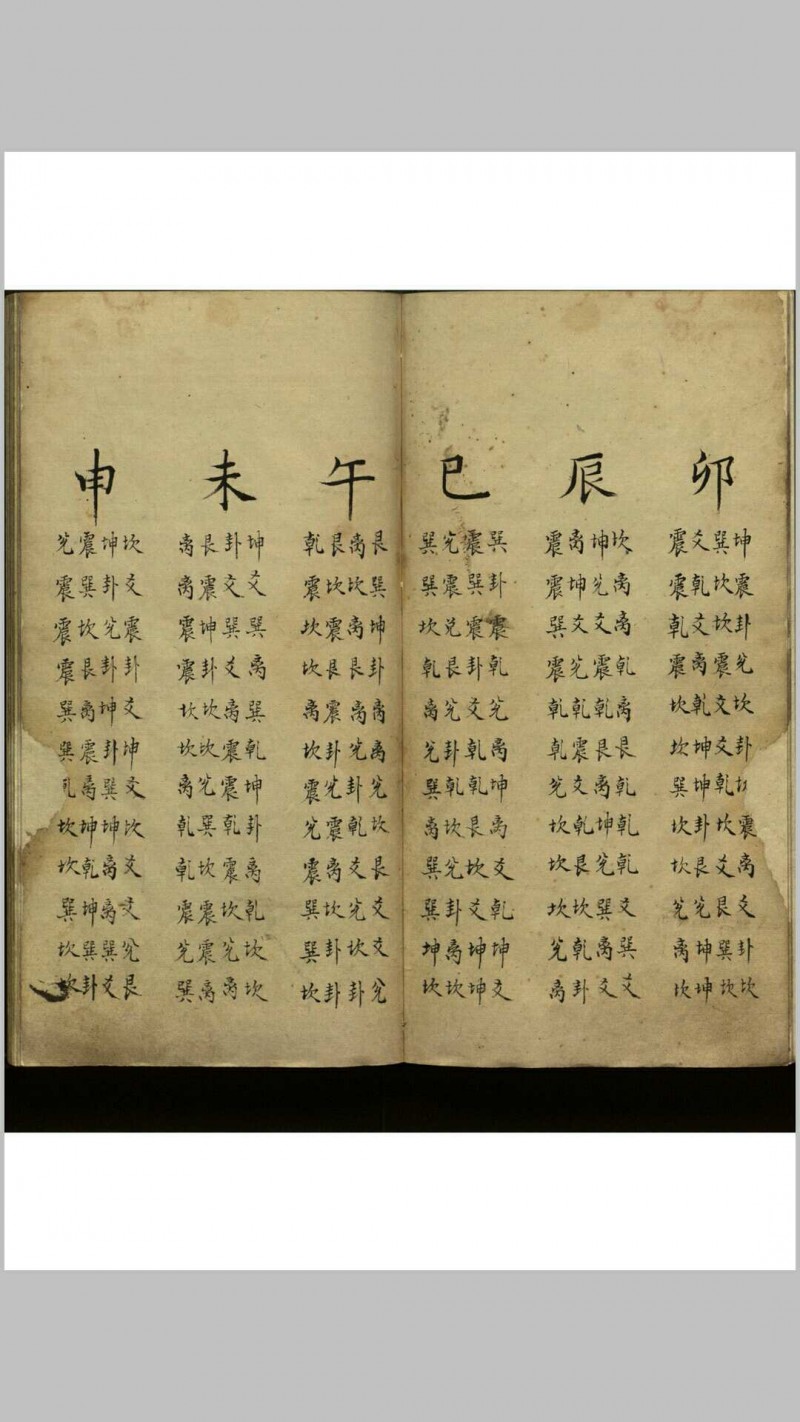 卯
坤震卦兊坎卦坎震离爻卦坎
巽坎坎震爻爻乾坎爻艮巽坎
爻乾爻离乾坤坤卦艮兊坤坤
震震乾震坎坎巽坎坎兊离坎
辰
坎离离乾离艮乾乾乾爻巽爻
坤兊爻震乾艮离坤兊巽离爻
离坤爻兊乾震爻乾艮坎乾卦
震震巽震乾乾兊坎坎坎兊离
巳
巽卦震乾兊离坤离爻乾坤爻
震巽震卦爻乾乾艮坎爻坤坤
兊震兑艮兊卦乾坎兊卦离坎
巽巽坎乾离兊巽离巽巽坤坎
午
艮巽坤卦离离兊坎艮爻爻兊
离坎离艮离兊卦乾爻兊坎卦
艮坎震艮震卦兊震离坎卦卦
乾震坎坎离坎震兊震巽巽坎
未
坤爻巽离巽乾坤卦离乾坎坎
卦爻巽爻离震震乾震坎兊离
艮震坤卦坎坎兊巽坎震震离
离离震震坎坎离乾乾震兊巽
申
坎爻震卦爻坤爻坎爻爻兊艮
坤卦兊卦坤卦巽坤离离巽爻
震巽坎艮离震离坤乾坤巽卦
兊震震震巽巽乾坎坎巽坎坎